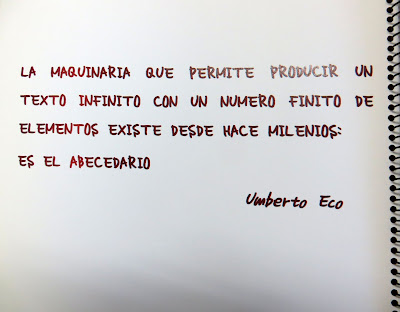 LA MAQUINARIA QUE PERMITE PRODUCIR UN
TEXTO INFINITO CON UN NUMERO FINITO DE
ELEMENTOS EXISTE DESDE HACE MILENIOS:
ES EL ABECEDARIO
Umberto Eco